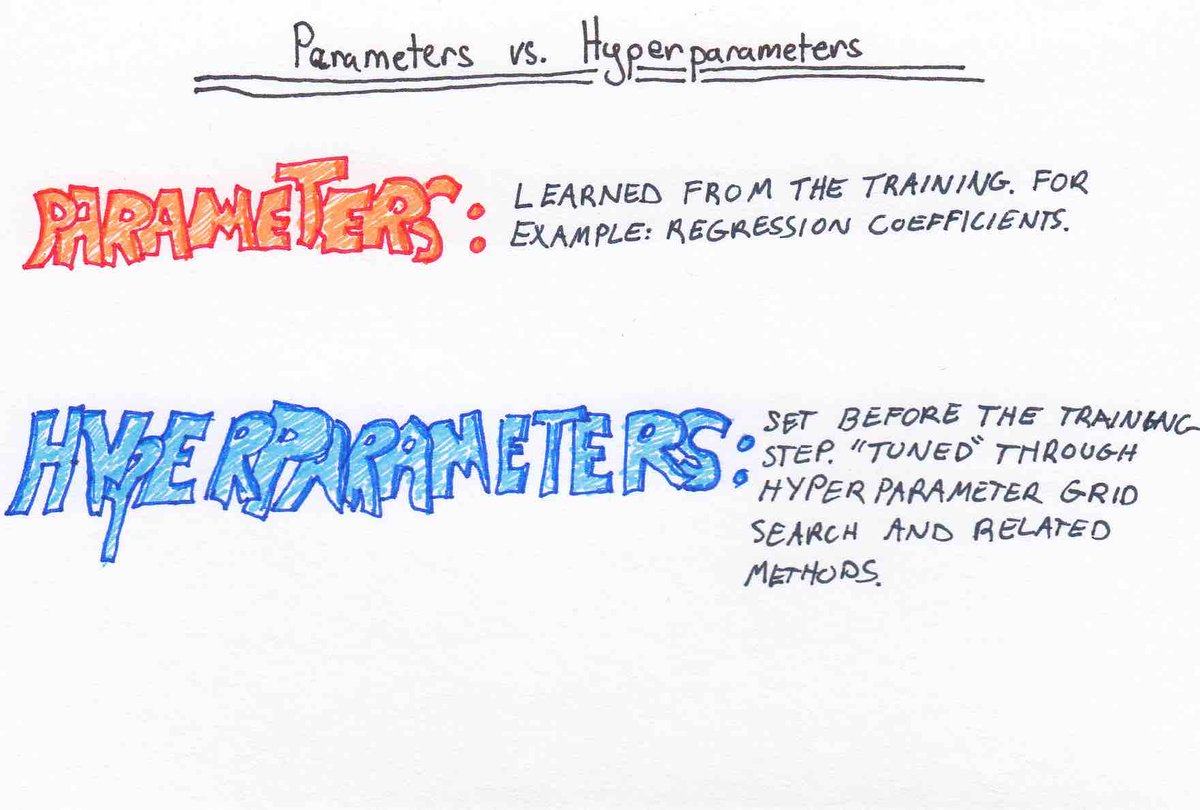 Parameters vs. Hyperparameters
PARAMETERS:
LEARNED FROM THE TRAINING. FOR
EXAMPLE: REGRESSION COEFFICIENTS.
HYPERPARAMETERS:
SET BEFORE THE TRAINING
STEP. "TUNED" THROUGH
HYPERPARAMETER GRID
SEARCH AND RELATED
METHODS.